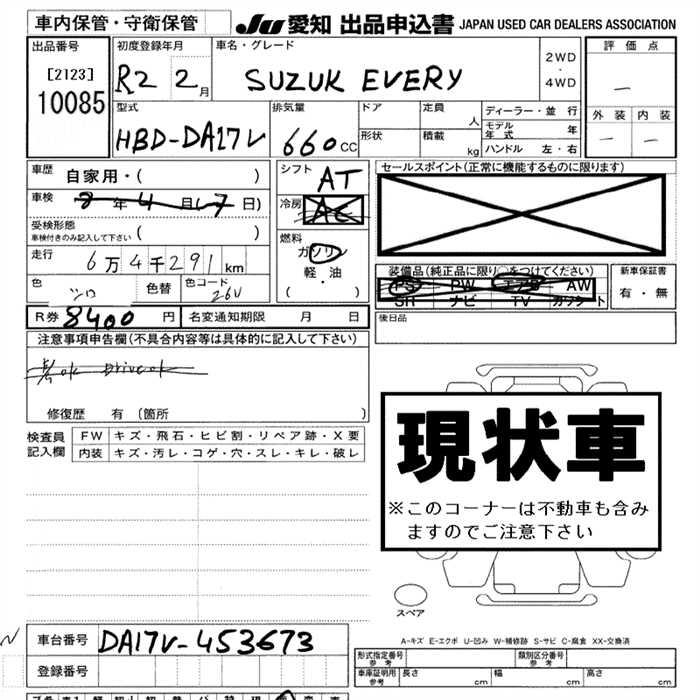 車内保管・守衛保管
JU 愛知 出品申込書 JAPAN USED CAR DEALERS ASSOCIATION
出品番号 初度登録年月 車名・グレード 評価点
[2123]
10085
R2 2月 SUZUK EVERY 2WD ・ 4WD
型式 排気量 ドア 定員 人 ディーラー・並行
外装 内装
HBD-DA17V 660CC 形状 積載 kg モデル年式 年
ハンドル 左・右
車歴 自家用・( )
シフト AT
セールスポイント(正常に機能するものに限ります)
車検 年4月(7日)
冷房 AC
受検形態
車検付きのみ記入して下さい ( )
燃料 ガソリン
軽・油
( ・ )
走行 6万4千291km
装備品(純正品に限り○をつけてください) 新車保証書
PS PW エアB AW
SH ナビ TV カセット
有・無
色 シロ 色替 色コード 26U
R券 8400円 名変通知期限 月 日
後日品
注意事項申告欄(不具合内容等は具体的に記入して下さい)
ok Drive ok
修復歴 有 (箇所 )
現状車
※このコーナーは不動車も含み
ますのでご注意下さい
検査員
記入欄
FW キズ・飛石・ヒビ割・リペア跡・X要
内装 キズ・汚レ・コゲ・穴・スレ・キレ・破レ
スペア
A-キズ E-エクボ U-凹み W-補修跡 S-サビ C-腐食 XX-交換済
車台番号 DA17V-453673
登録番号
型式指定番号
参考
類別区分番号
参考
車庫証明用
参考
長さ cm 幅 cm 高さ cm